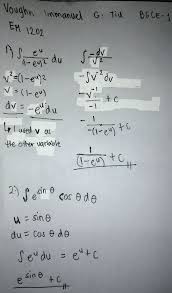 Vaughn Immanuel G. Tiu BSCE-1
EM 1202
1) ∫ e^u/(1-e^u)² du ∫ -dv/v²
v² = (1-e^u)² -∫v⁻² dv
v = (1-e^u) -v⁻¹/-1 + C
dv = -e^u du -1/-(1-e^u) + C
I used v as
the other variable 1/(1-e^u) + C //
2) ∫ e^sin θ cos θ dθ
u = sin θ
du = cos θ dθ
∫ e^u du = e^u + C
e^sin θ + C //